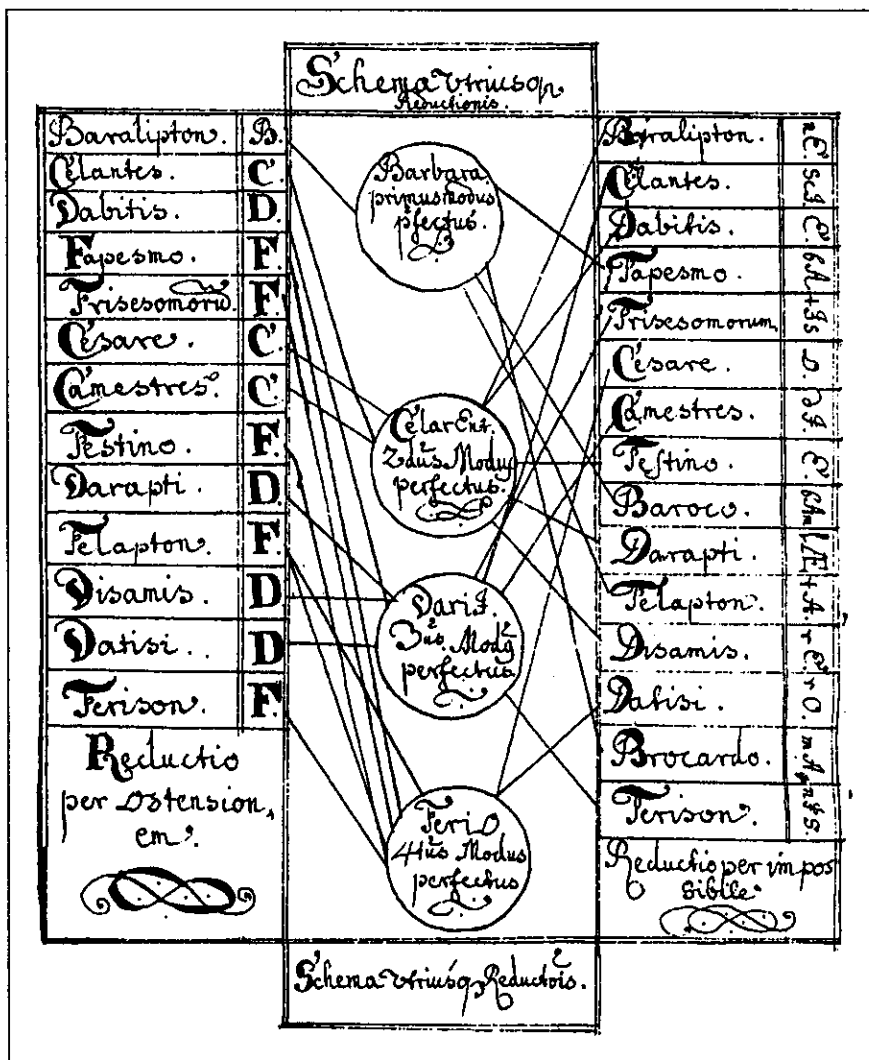 Schema Utriusq
Reductionis.
Baralipton. B.
Celantes. C.
Dabitis. D.
Fapesmo. F.
Frisesomorũ. F.
Cesare. C.
Camestres. C.
Festino. F.
Darapti. D.
Felapton. F.
Disamis. D
Datisi. D
Ferison. F.
Reductio
per ostension,
em.
Barbara
primus modus
pfectus
CelarEnt.
2dus Modus
perfectus.
DariI.
3us. Modq
perfectus.
FeriO
4tus Modus
perfectus
Baralipton.
Celantes.
Dabitis.
Fapesmo.
Frisesomorum
Cesare.
Camestres.
Festino.
Baroco.
Darapti.
Felapton.
Disamis.
Datisi.
Brocardo.
Ferison.
Reductio per impos
sibile
Schema Utriusq Reductois.